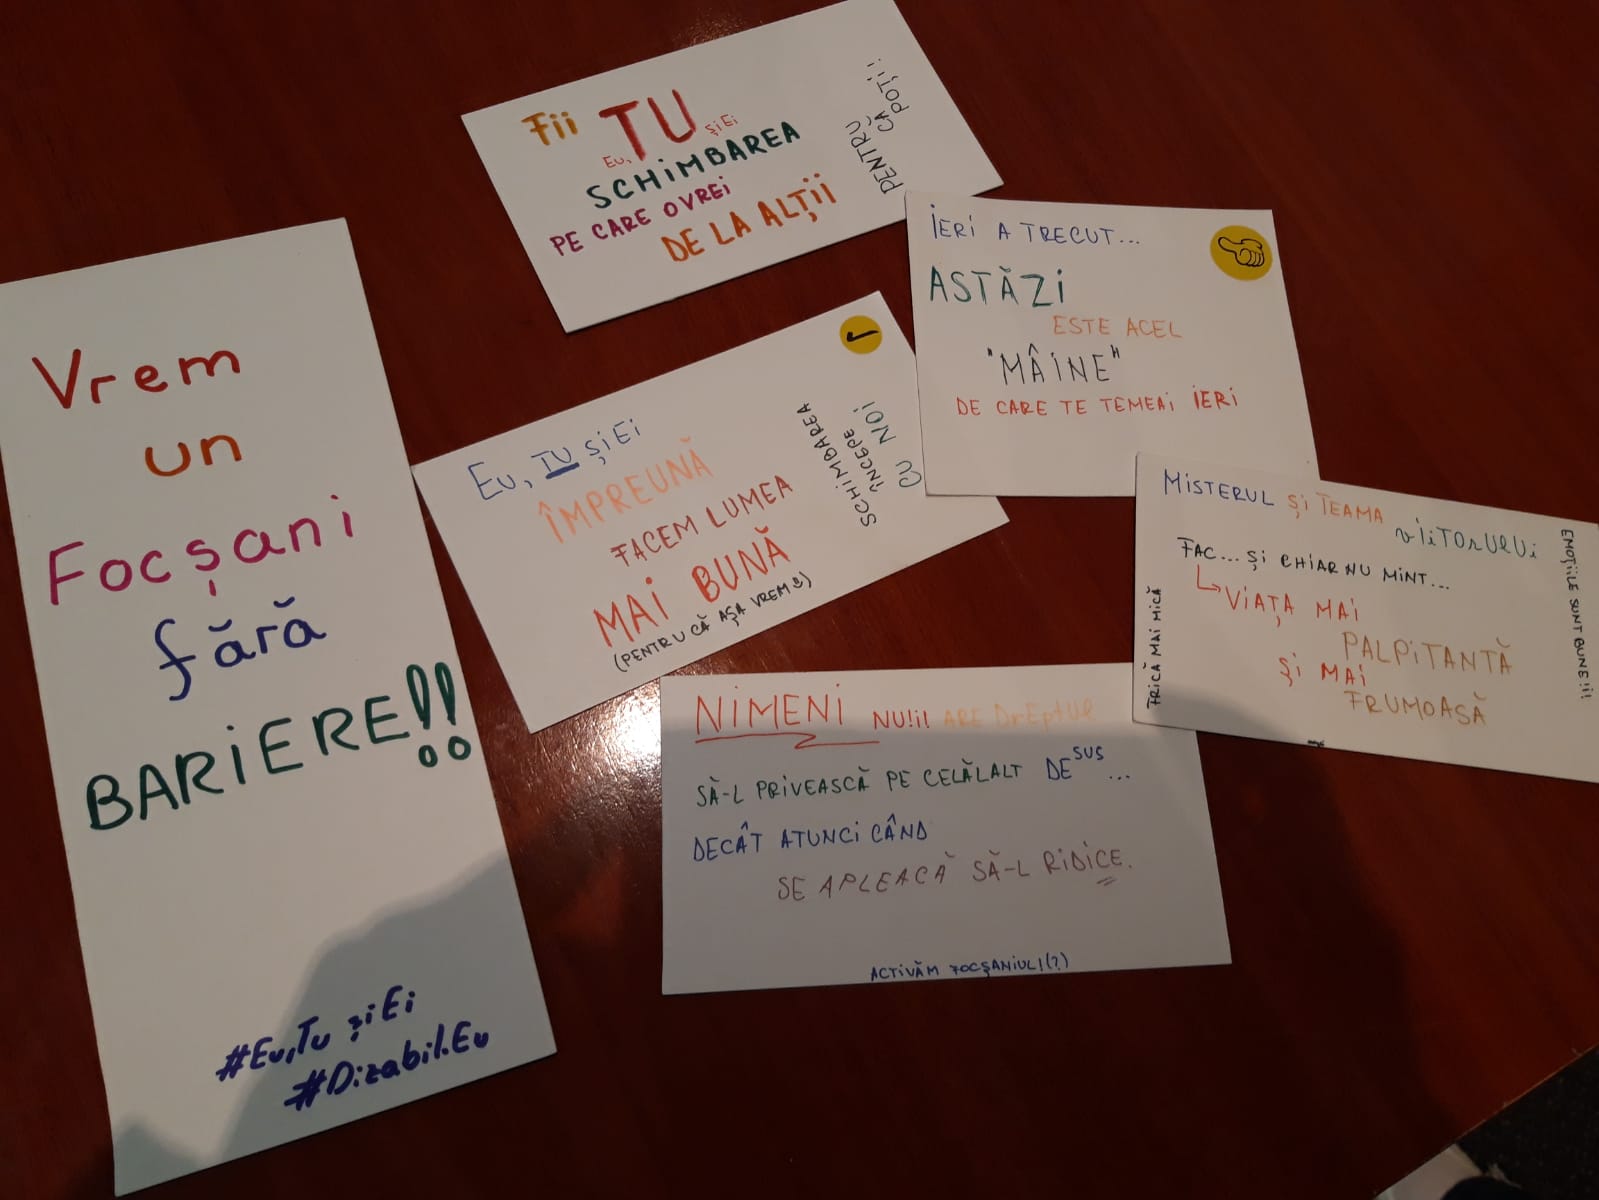 Vrem
un
Focșani
fără
BARIERE!!
#Eu,Tu șiEi
#Dizabil.Eu
Fii TU
Eu, șiEi
SCHIMBAREA
PE CARE O VREI
DE LA ALȚII
PENTRU
CĂ POȚI!!
IERI A TRECUT...
ASTĂZI
ESTE ACEL
"MÂINE"
DE CARE TE TEMEAI IERI
Eu, TU șiEi
ÎMPREUNĂ
FACEM LUMEA
MAI BUNĂ
(PENTRU CĂ AȘA VREM)
SCHIMBAREA
ÎNCEPE
CU NOI
MISTERUL ȘI TEAMA
viiTORULUi
FAC... ȘI CHIAR NU MINT...
VIAȚA MAI
PALPITANTĂ
ȘI MAI
FRUMOASĂ
FRICĂ MAI MICĂ
EMOȚIILE SUNT BUNE!!!
NIMENI NU!!! ARE DrEptUl
SĂ-L PRIVEASCĂ PE CELĂLALT DE SUS ...
DECÂT ATUNCI CÂND
SE APLEACĂ SĂ-L RIDICE.
ACTIVĂM FOCȘANIUL!(?)